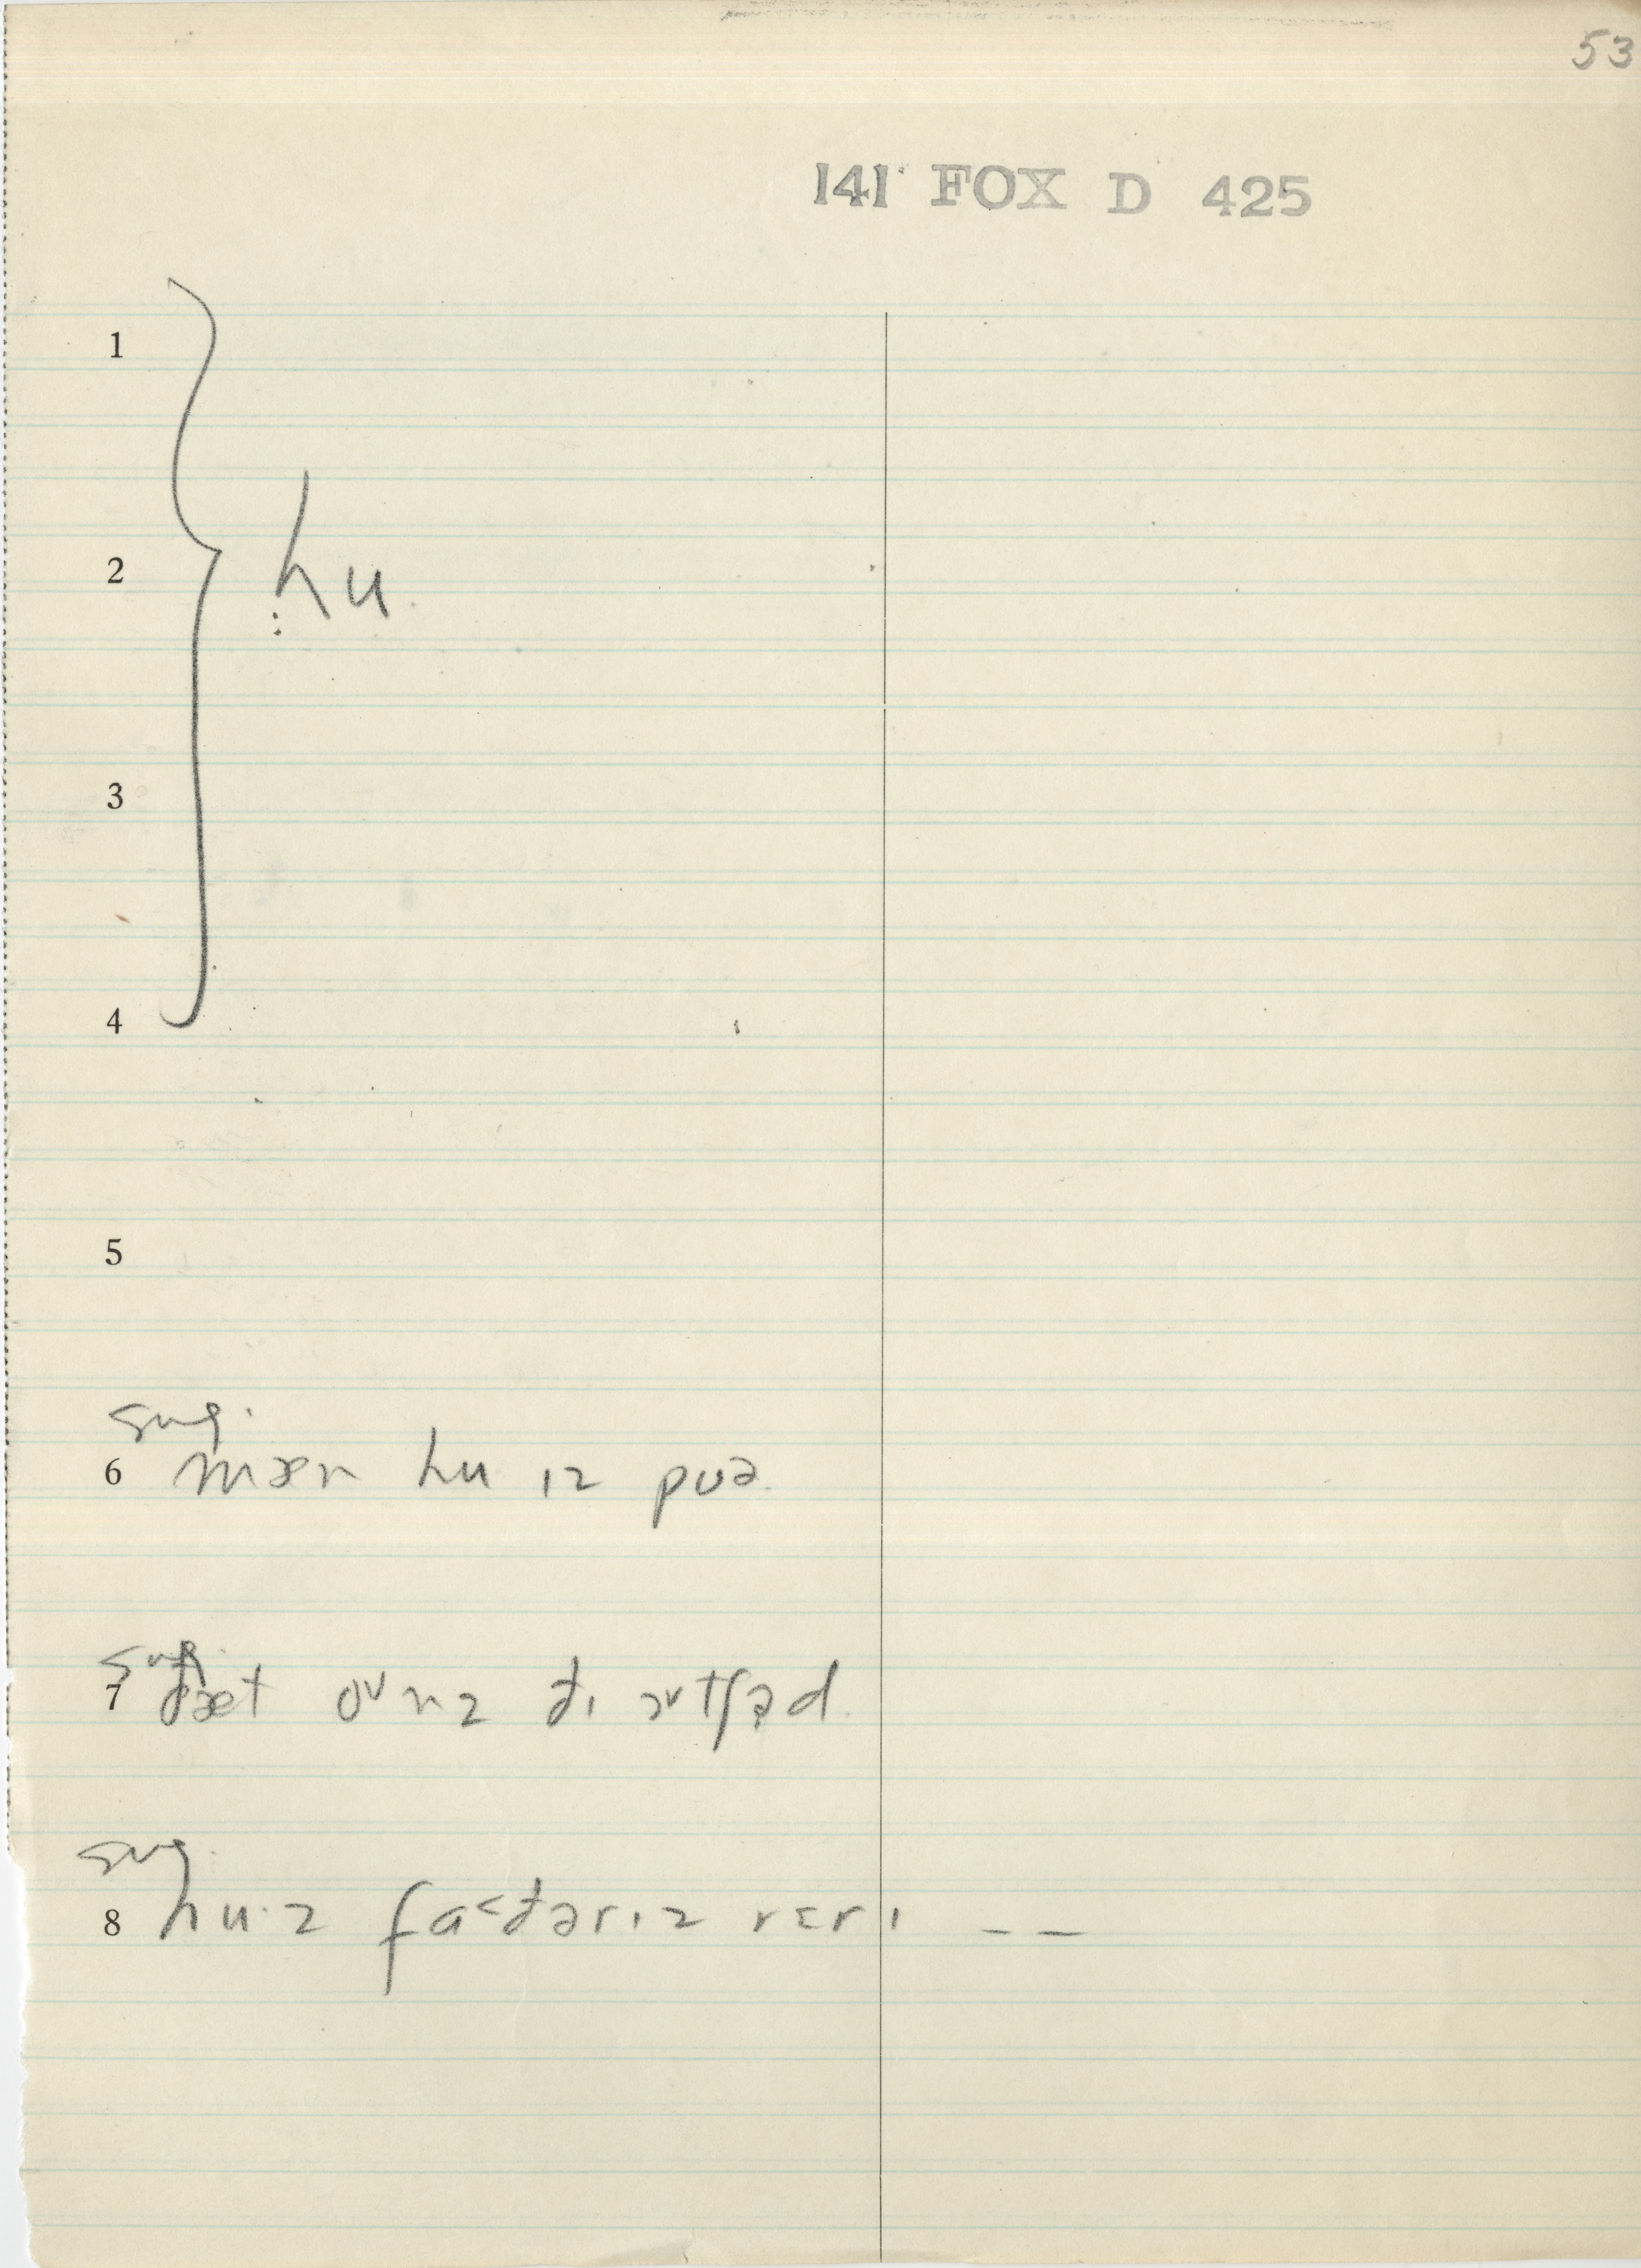 53
141 FOX D 425
1
2 hu
3
4
5
sug.
6 mæn hu ɪz pʊə
sug.
7 ðæt oᵛnz ðɪ ɔᵛtʃəd
sug.
8 hu·z fa˂ðərɪz vɛrɪ – –